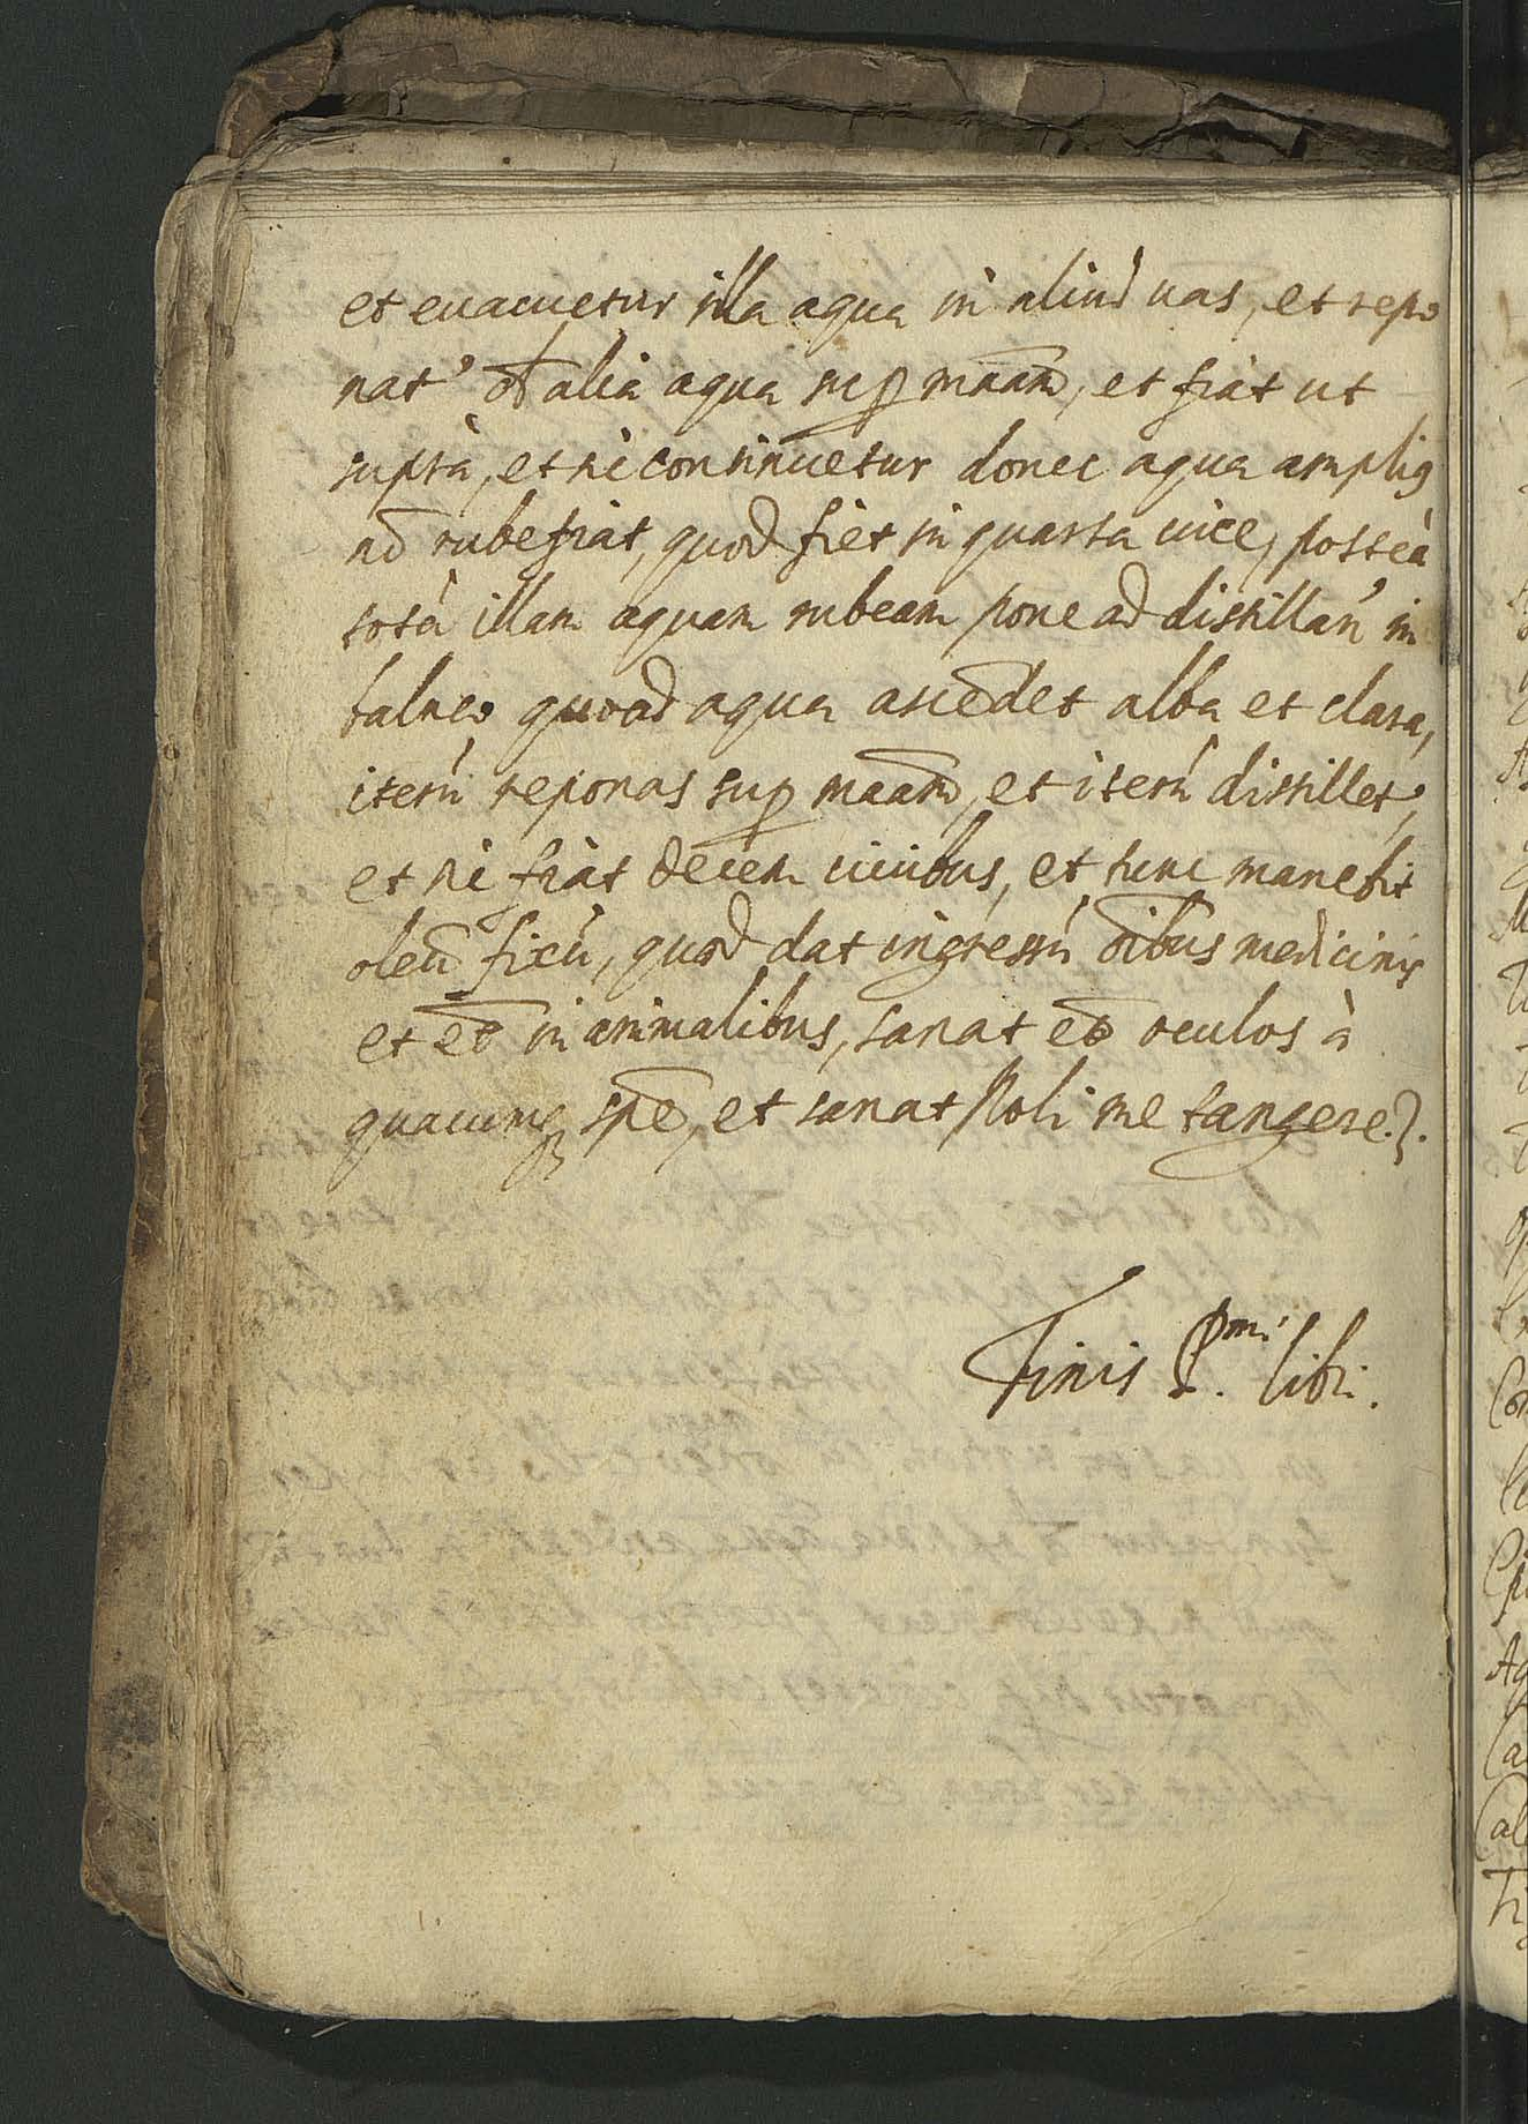 et euacuetur illa aqua in aliud uas, et repo
nat' alia aqua sup maam, et fiat ut
supra, et sic continuetur donec aqua amplig
nō rubefiat, quod fiet in quarta uice, posteà
totā illam aquam rubeam pone ad distillan' in
balneo quoad aqua ascēdet alba et clara,
iterū reponas sup maam, et iterū distillet',
et sic fiat decem uicibus, et tunc manebit
oleū fixū, quod dat ingressū oībus medicinis
et et̄ in animalibus, sanat et̄ oculos à
quacunq spē, et sanat Noli me tangere.
Finis P.mi libri.